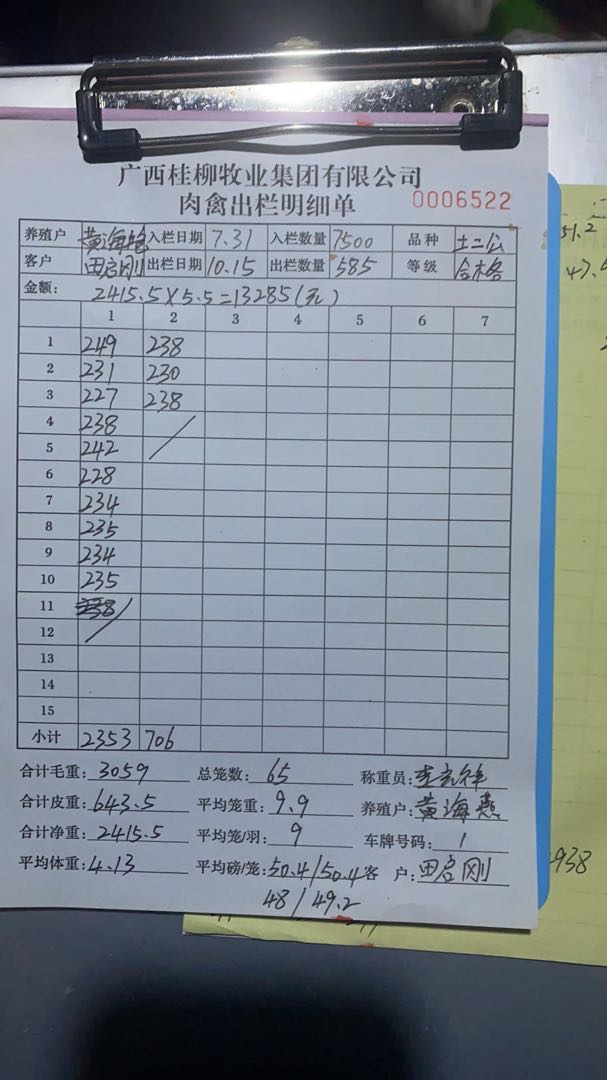 广西桂柳牧业集团有限公司
肉禽出栏明细单 0006522
养殖户 黄海艳 入栏日期 7.31 入栏数量 7500 品种 土二公
客户 田启刚 出栏日期 10.15 出栏数量 585 等级 合格
金额: 2415.5×5.5=13285(元)
1 2 3 4 5 6 7
1 249 238
2 231 230
3 227 238
4 238
5 242
6 228
7 234
8 235
9 234
10 235
11
12
13
14
15
小计 2353 706
合计毛重: 3059 总笼数: 65 称重员:
合计皮重: 643.5 平均笼重: 9.9 养殖户: 黄海燕
合计净重: 2415.5 平均笼/羽: 9 车牌号码: 1
平均体重: 4.13 平均磅/笼: 50.4/50.4 客 户: 田启刚
48/49.2
51.2
938